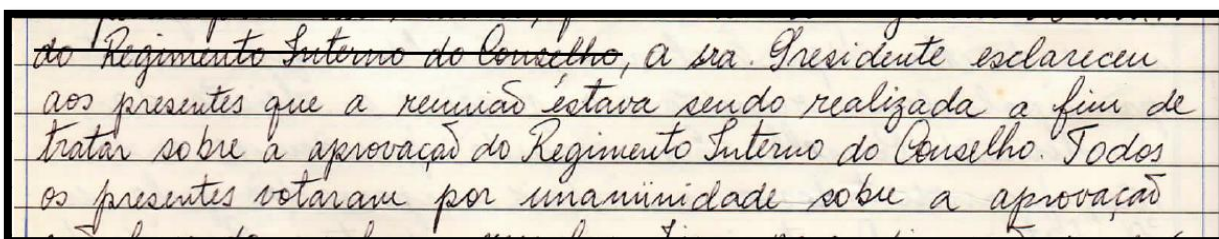 do Regimento Interno do Conselho, a sra. Presidente esclareceu
aos presentes que a reunião estava sendo realizada a fim de
tratar sobre a aprovação do Regimento Interno do Conselho. Todos
os presentes votaram por unanimidade sobre a aprovação